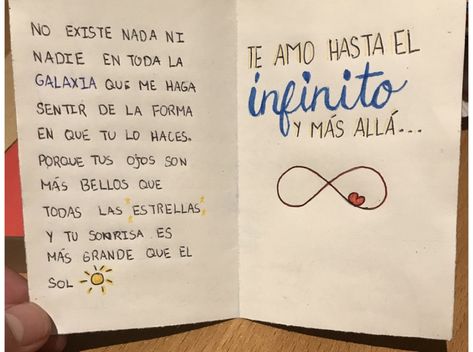 NO EXISTE NADA NI
NADIE EN TODA LA
GALAXIA QUE ME HAGA
SENTIR DE LA FORMA
EN QUE TU LO HACES.
PORQUE TUS OJOS SON
MÁS BELLOS QUE
TODAS LAS ESTRELLAS
Y TU SONRISA ES
MÁS GRANDE QUE EL
SOL
TE AMO HASTA EL
infinito
Y MÁS ALLÁ...